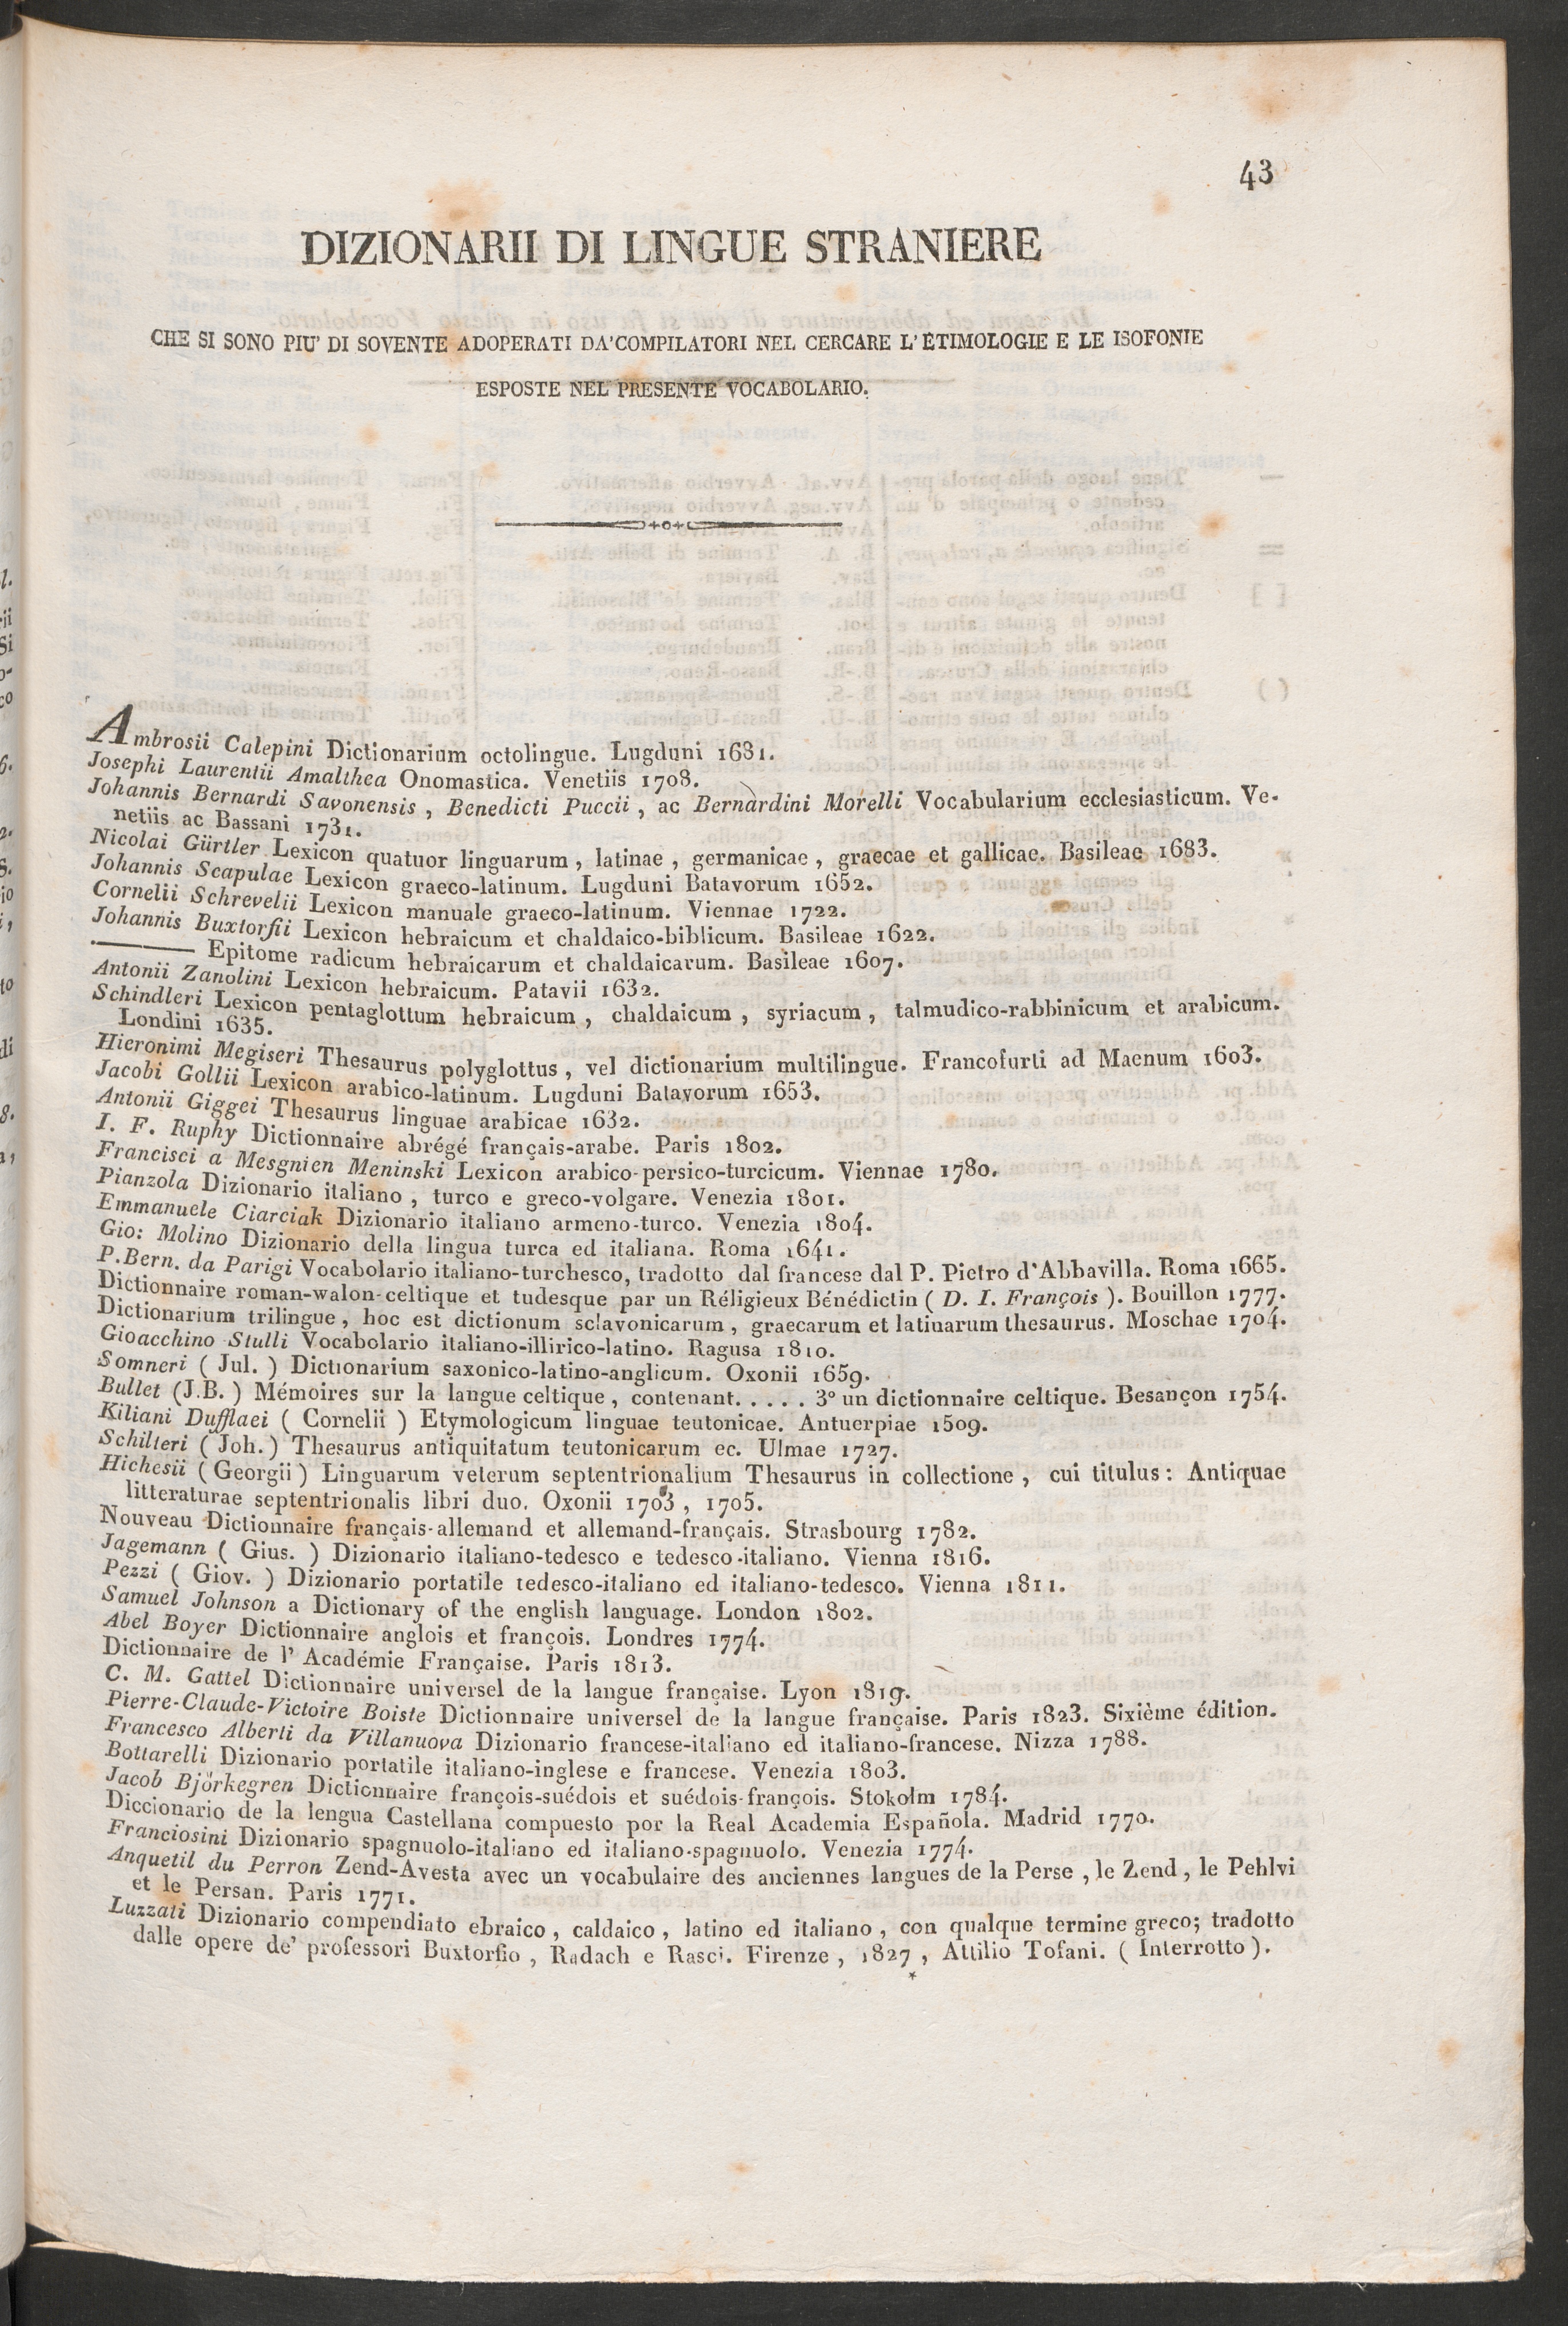 43
DIZIONARII DI LINGUE STRANIERE
CHE SI SONO PIU' DI SOVENTE ADOPERATI DA'COMPILATORI NEL CERCARE L'ETIMOLOGIE E LE ISOFONIE
ESPOSTE NEL PRESENTE VOCABOLARIO.
Ambrosii Calepini Dictionarium octolingue. Lugduni 1681.
Josephi Laurentii Amalthea Onomastica. Venetiis 1708.
Johannis Bernardi Savonensis, Benedicti Puccii, ac Bernardini Morelli Vocabularium ecclesiasticum. Ve-
netiis ac Bassani 1731.
Nicolai Gürtler Lexicon quatuor linguarum, latinae, germanicae, graecae et gallicae. Basileae 1683.
Johannis Scapulae Lexicon graeco-latinum. Lugduni Batavorum 1652.
Cornelii Schrevelii Lexicon manuale graeco-latinum. Viennae 1722.
Johannis Buxtorfii Lexicon hebraicum et chaldaico-biblicum. Basileae 1622.
——— Epitome radicum hebraicarum et chaldaicarum. Basileae 1607.
Antonii Zanolini Lexicon hebraicum. Patavii 1632.
Schindleri Lexicon pentaglottum hebraicum, chaldaicum, syriacum, talmudico-rabbinicum et arabicum.
Londini 1635.
Hieronimi Megiseri Thesaurus polyglottus, vel dictionarium multilingue. Francofurti ad Maenum 1603.
Jacobi Gollii Lexicon arabico-latinum. Lugduni Batavorum 1653.
Antonii Giggei Thesaurus linguae arabicae 1632.
I. F. Ruphy Dictionnaire abrégé français-arabe. Paris 1802.
Francisci a Mesgnien Meninski Lexicon arabico-persico-turcicum. Viennae 1780.
Pianzola Dizionario italiano, turco e greco-volgare. Venezia 1801.
Emmanuele Ciarciak Dizionario italiano armeno-turco. Venezia 1804.
Gio: Molino Dizionario della lingua turca ed italiana. Roma 1641.
P. Bern. da Parigi Vocabolario italiano-turchesco, tradotto dal francese dal P. Pietro d'Abbavilla. Roma 1665.
Dictionnaire roman-walon-celtique et tudesque par un Réligieux Bénédictin ( D. I. François ). Bouillon 1777.
Dictionarium trilingue, hoc est dictionum sclavonicarum, graecarum et latinarum thesaurus. Moschae 1704.
Gioacchino Stulli Vocabolario italiano-illirico-latino. Ragusa 1810.
Somneri ( Jul. ) Dictionarium saxonico-latino-anglicum. Oxonii 1659.
Bullet (J.B. ) Mémoires sur la langue celtique, contenant. . . . . 3° un dictionnaire celtique. Besançon 1754.
Kiliani Dufflaei ( Cornelii ) Etymologicum linguae teutonicae. Antuerpiae 1509.
Schilteri ( Joh. ) Thesaurus antiquitatum teutonicarum ec. Ulmae 1727.
Hichesii ( Georgii ) Linguarum veterum septentrionalium Thesaurus in collectione, cui titulus: Antiquae
litteraturae septentrionalis libri duo. Oxonii 1703, 1705.
Nouveau Dictionnaire français-allemand et allemand-français. Strasbourg 1782.
Jagemann ( Gius. ) Dizionario italiano-tedesco e tedesco-italiano. Vienna 1816.
Pezzi ( Giov. ) Dizionario portatile tedesco-italiano ed italiano-tedesco. Vienna 1811.
Samuel Johnson a Dictionary of the english language. London 1802.
Abel Boyer Dictionnaire anglois et françois. Londres 1774.
Dictionnaire de l' Académie Française. Paris 1813.
C. M. Gattel Dictionnaire universel de la langue française. Lyon 1819.
Pierre-Claude-Victoire Boiste Dictionnaire universel de la langue française. Paris 1823. Sixième édition.
Francesco Alberti da Villanuova Dizionario francese-italiano ed italiano-francese. Nizza 1788.
Bottarelli Dizionario portatile italiano-inglese e francese. Venezia 1803.
Jacob Björkegren Dictionnaire françois-suédois et suédois-françois. Stokolm 1784.
Diccionario de la lengua Castellana compuesto por la Real Academia Española. Madrid 1770.
Franciosini Dizionario spagnuolo-italiano ed italiano-spagnuolo. Venezia 1774.
Anquetil du Perron Zend-Avesta avec un vocabulaire des anciennes langues de la Perse, le Zend, le Pehlvi
et le Persan. Paris 1771.
Luzzati Dizionario compendiato ebraico, caldaico, latino ed italiano, con qualque termine greco; tradotto
dalle opere de' professori Buxtorfio, Radach e Rasci. Firenze, 1827, Attilio Tofani. ( Interrotto ).
*